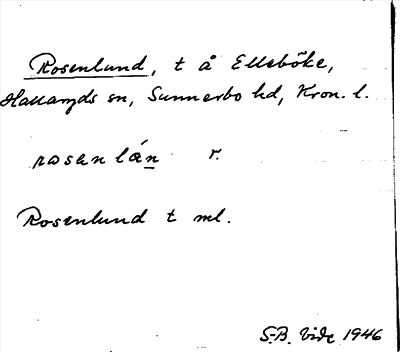 Rosenlund, t å Ellsböke,
Hallaryds sn, Sunnerbo hd, Kron. l.
rosenlán r.
Rosenlund t ml.
S-B. Vide 1946